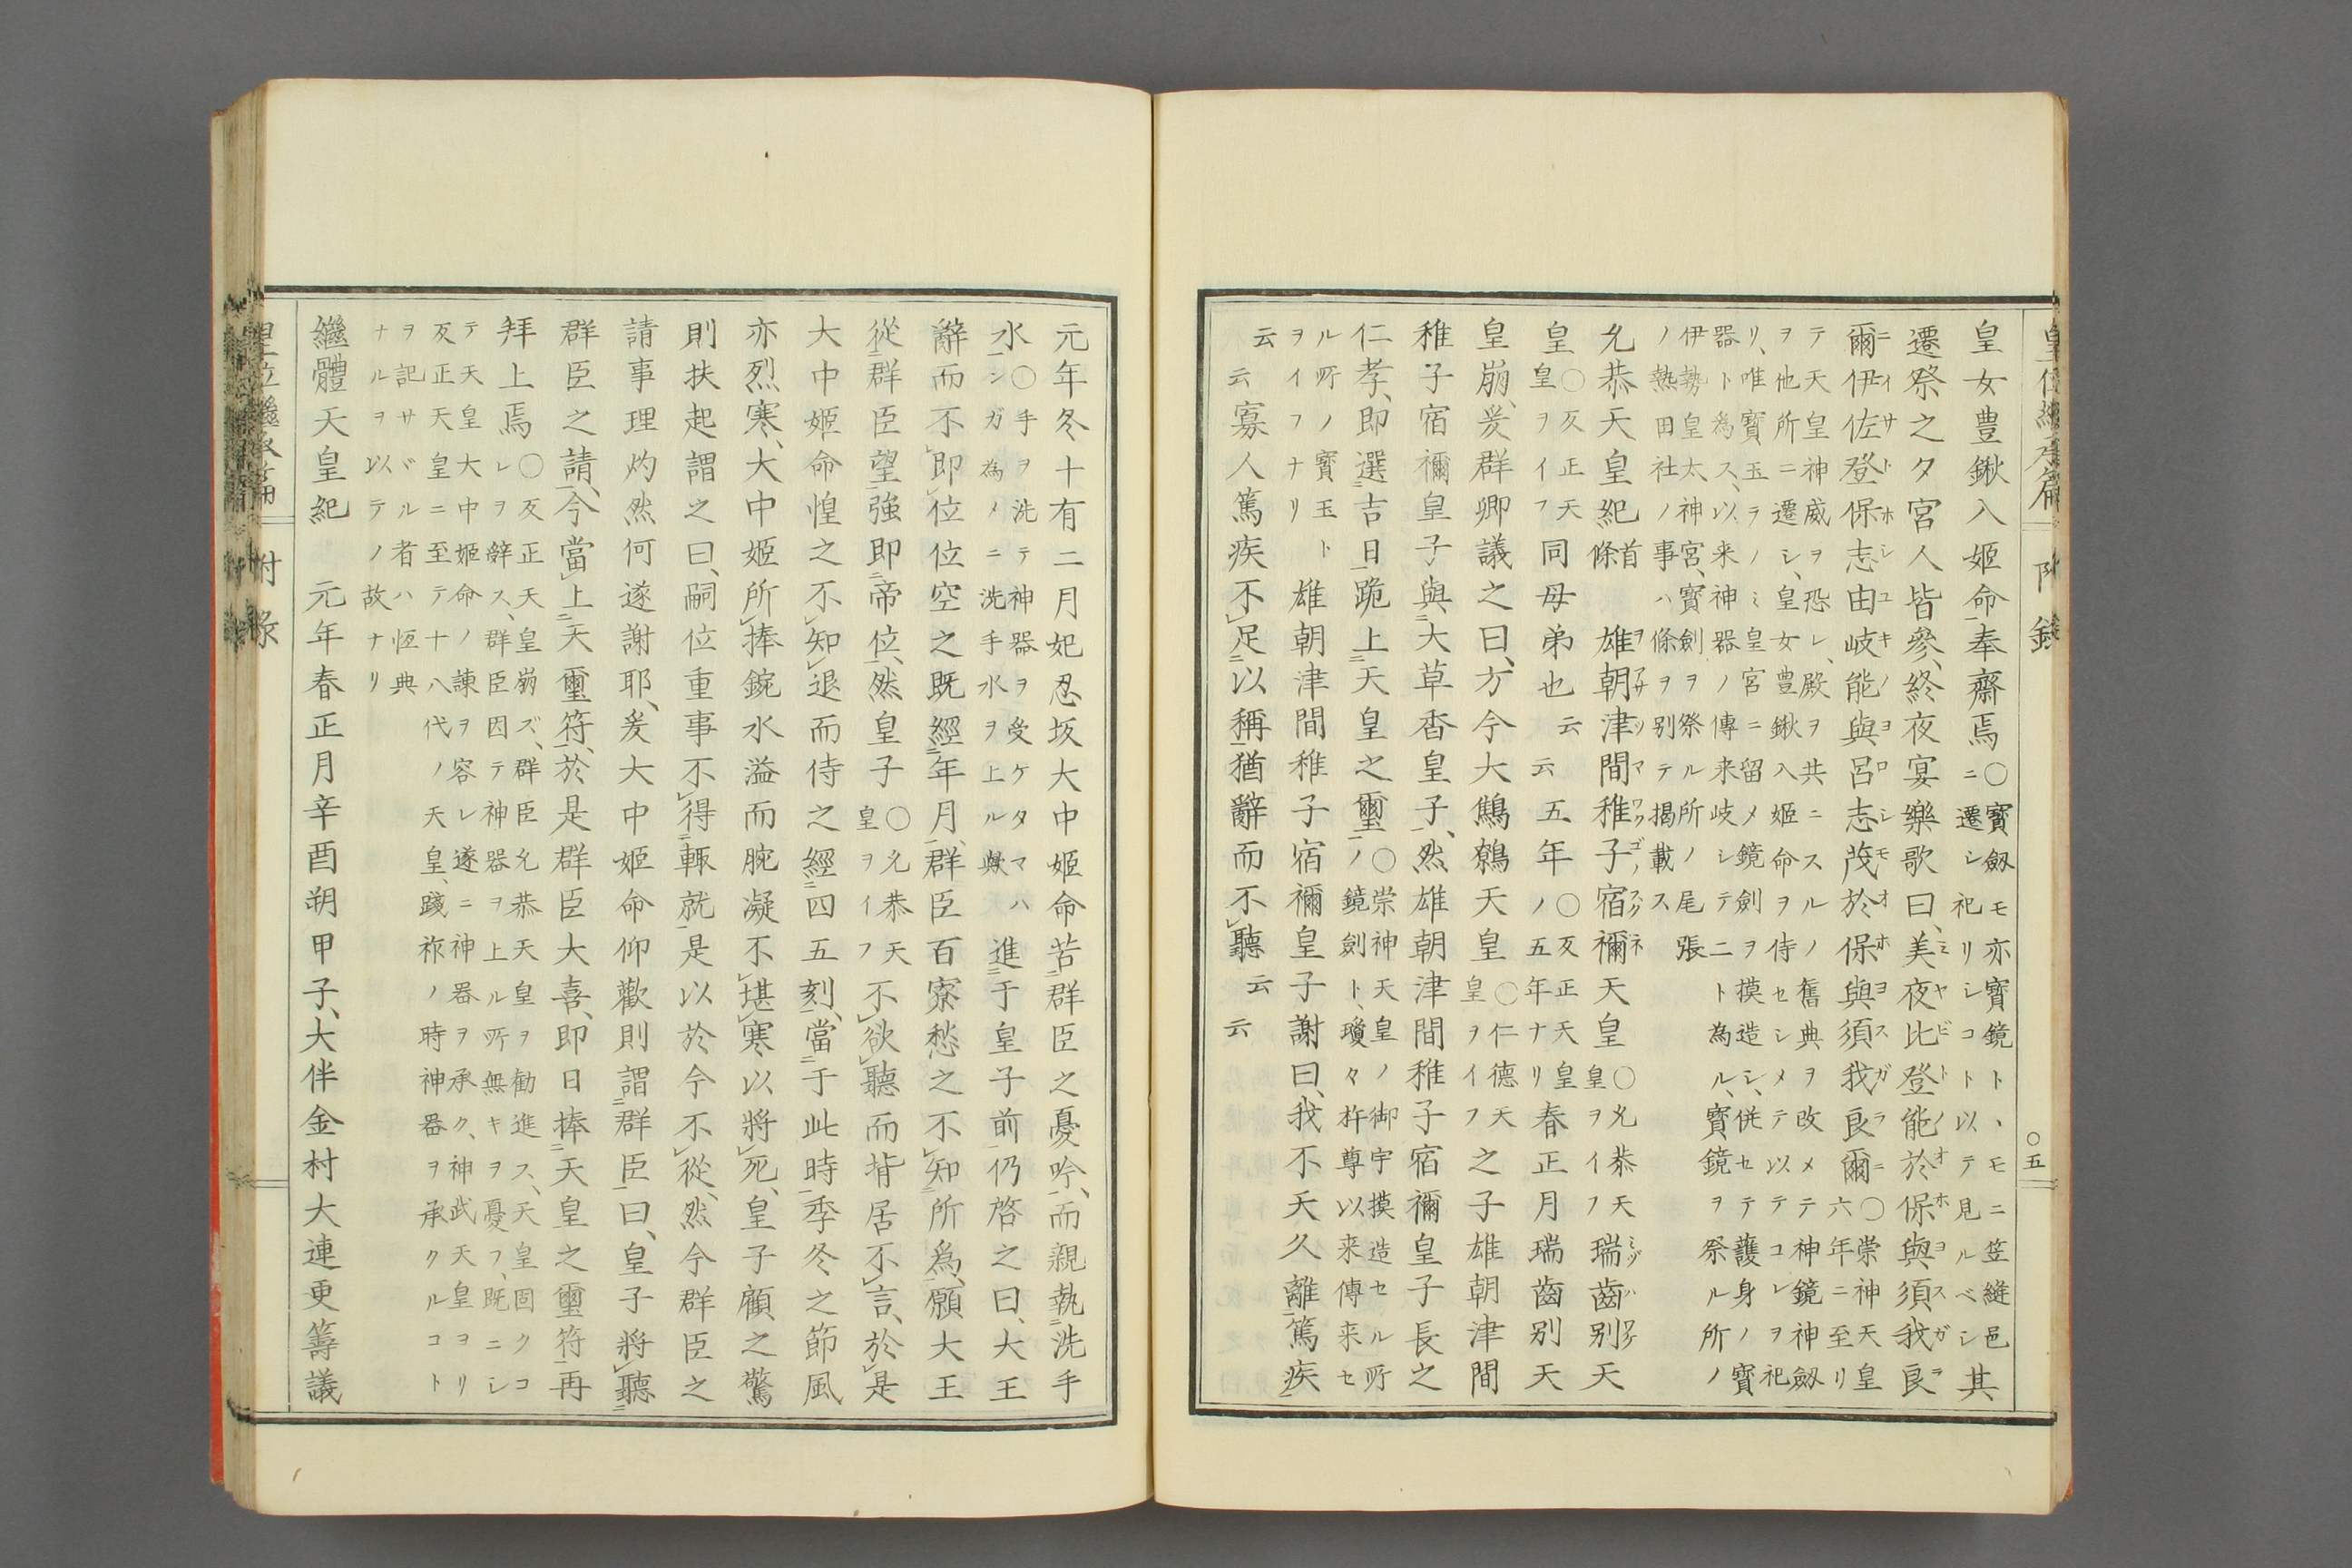 皇位繼承篇 附錄 ○五
皇女豊鍬入姬命奉齋焉○寶劔モ亦寶鏡ト丶モニ笠縫邑ニ遷シ祀リシコト以テ見ルベシ其
遷祭之夕宮人皆參、終夜宴樂歌曰、美夜比登能於保與須我良
爾伊佐登保志由岐能與呂志茂於保與須我良爾○崇神天皇六年ニ至リ
テ天皇神威ヲ恐レ、殿ヲ共ニスルノ舊典ヲ改メテ神鏡神劔
ヲ他所ニ遷シ、皇女豊鍬入姬命ヲ侍セシメテ以テコレヲ祀
リ、唯寶玉ヲノミ皇宮ニ留メ鏡劍ヲ摸造シ、併セテ護身ノ寶
器ト為ス、以来神器ノ傳来岐シテ二ト為ル、寶鏡ヲ祭ル所ノ
伊勢皇太神宮、寶劍ヲ祭ル所ノ尾張
ノ熱田社ノ事ハ條ヲ别テ揭載ス
允恭天皇紀首條 雄朝津間稚子宿禰天皇○允恭天皇ヲイフ瑞齒别天
皇○反正天皇ヲイフ同母弟也云云五年ノ○反正天皇五年ナリ春正月瑞齒别天
皇崩、爰群卿議之曰、方今大鷦鷯天皇○仁德天皇ヲイフ之子雄朝津間
稚子宿禰皇子與大草香皇子、然雄朝津間稚子宿禰皇子長之
仁孝、即選吉日跪上天皇之璽○崇神天皇ノ御宇摸造セル所ノ鏡劍ト、瓊々杵尊以来傳来セ
ル所ノ寶玉トヲイフナリ雄朝津間稚子宿禰皇子謝曰、我不天久離篤疾
云云寡人篤疾不足以稱猶辭而不聽云云
元年冬十有二月妃忍坂大中姬命苦群臣之憂吟、而親執洗手
水○手ヲ洗テ神器ヲ受ケタマハンガ為ノニ洗手水ヲ上ル歟進于皇子前仍啓之曰、大王
辭而不即位位空之既經年月、群臣百寮愁之不知所爲、願大王
從群臣望強即帝位、然皇子○允恭天皇ヲイフ不欲聽而背居不言、於是
大中姬命惶之不知退而侍之經四五刻、當于此時季冬之節風
亦烈寒、大中姬所捧鋺水溢而腕凝不堪寒以將死、皇子顧之驚
則扶起謂之曰、嗣位重事不得輙就是以於今不從、然今群臣之
請事理灼然何遂謝耶、爰大中姬命仰歡則謂群臣曰、皇子將聽
群臣之請、今當上天璽符、於是群臣大喜、即日捧天皇之璽符再
拜上焉○反正天皇崩ズ、群臣允恭天皇ヲ勸進ス、天皇固クコレヲ辭ス、群臣因テ神器ヲ上ル所無キヲ憂フ、既ニシ
テ天皇大中姬命ノ諫ヲ容レ遂ニ神器ヲ承ク、神武天皇ヨリ
反正天皇ニ至テ十八代ノ天皇、踐祚ノ時神器ヲ承クルコト
ヲ記サバル者ハ恆典
ナルヲ以テノ故ナリ
繼體天皇紀 元年春正月辛酉朔甲子、大伴金村大連更籌議
皇位繼承篇 附錄